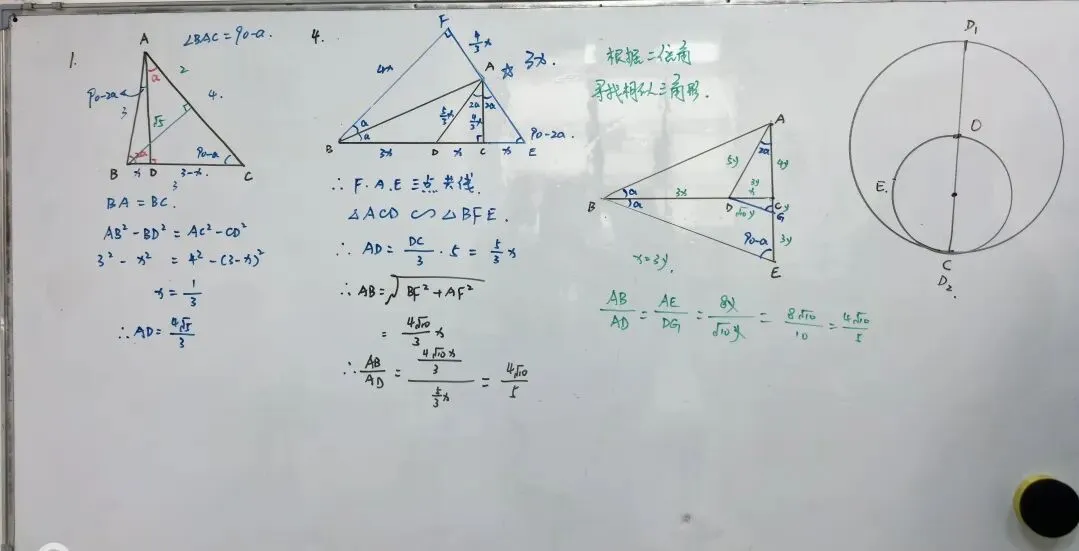 1.
∠BAC=90-a.
A
a
2
90-2a
3
4.
√5
2a
90-a
B
x
D
3-x.
C
3
BA=BC.
AB²-BD²=AC²-CD²
3²-x²=4²-(3-x)²
x=1/3
∴AD=4√5/3
4.
F
4/3x
4x
A
☆
3x.
a
a
5/3x
2a
2a
4/3x
90-2a.
B
3x
D
x
C
x
E
∴F.A.E三点共线.
△ACD∽△BFE.
∴AD=DC/3·5=5/3x
∴AB=√BF²+AF²
=4√10/3x
∴AB/AD=4√10x/3/5/3x=4√10/5
根据二倍角
寻找相似三角形.
A
2a
5y
4y
a
a
3y
x
B
3x
D
C
y
√10y
G
90-a
3y
E
x=3y.
AB/AD=AE/DG=8y/√10y=8√10/10=4√10/5
D₁
D
E.
C
D₂.